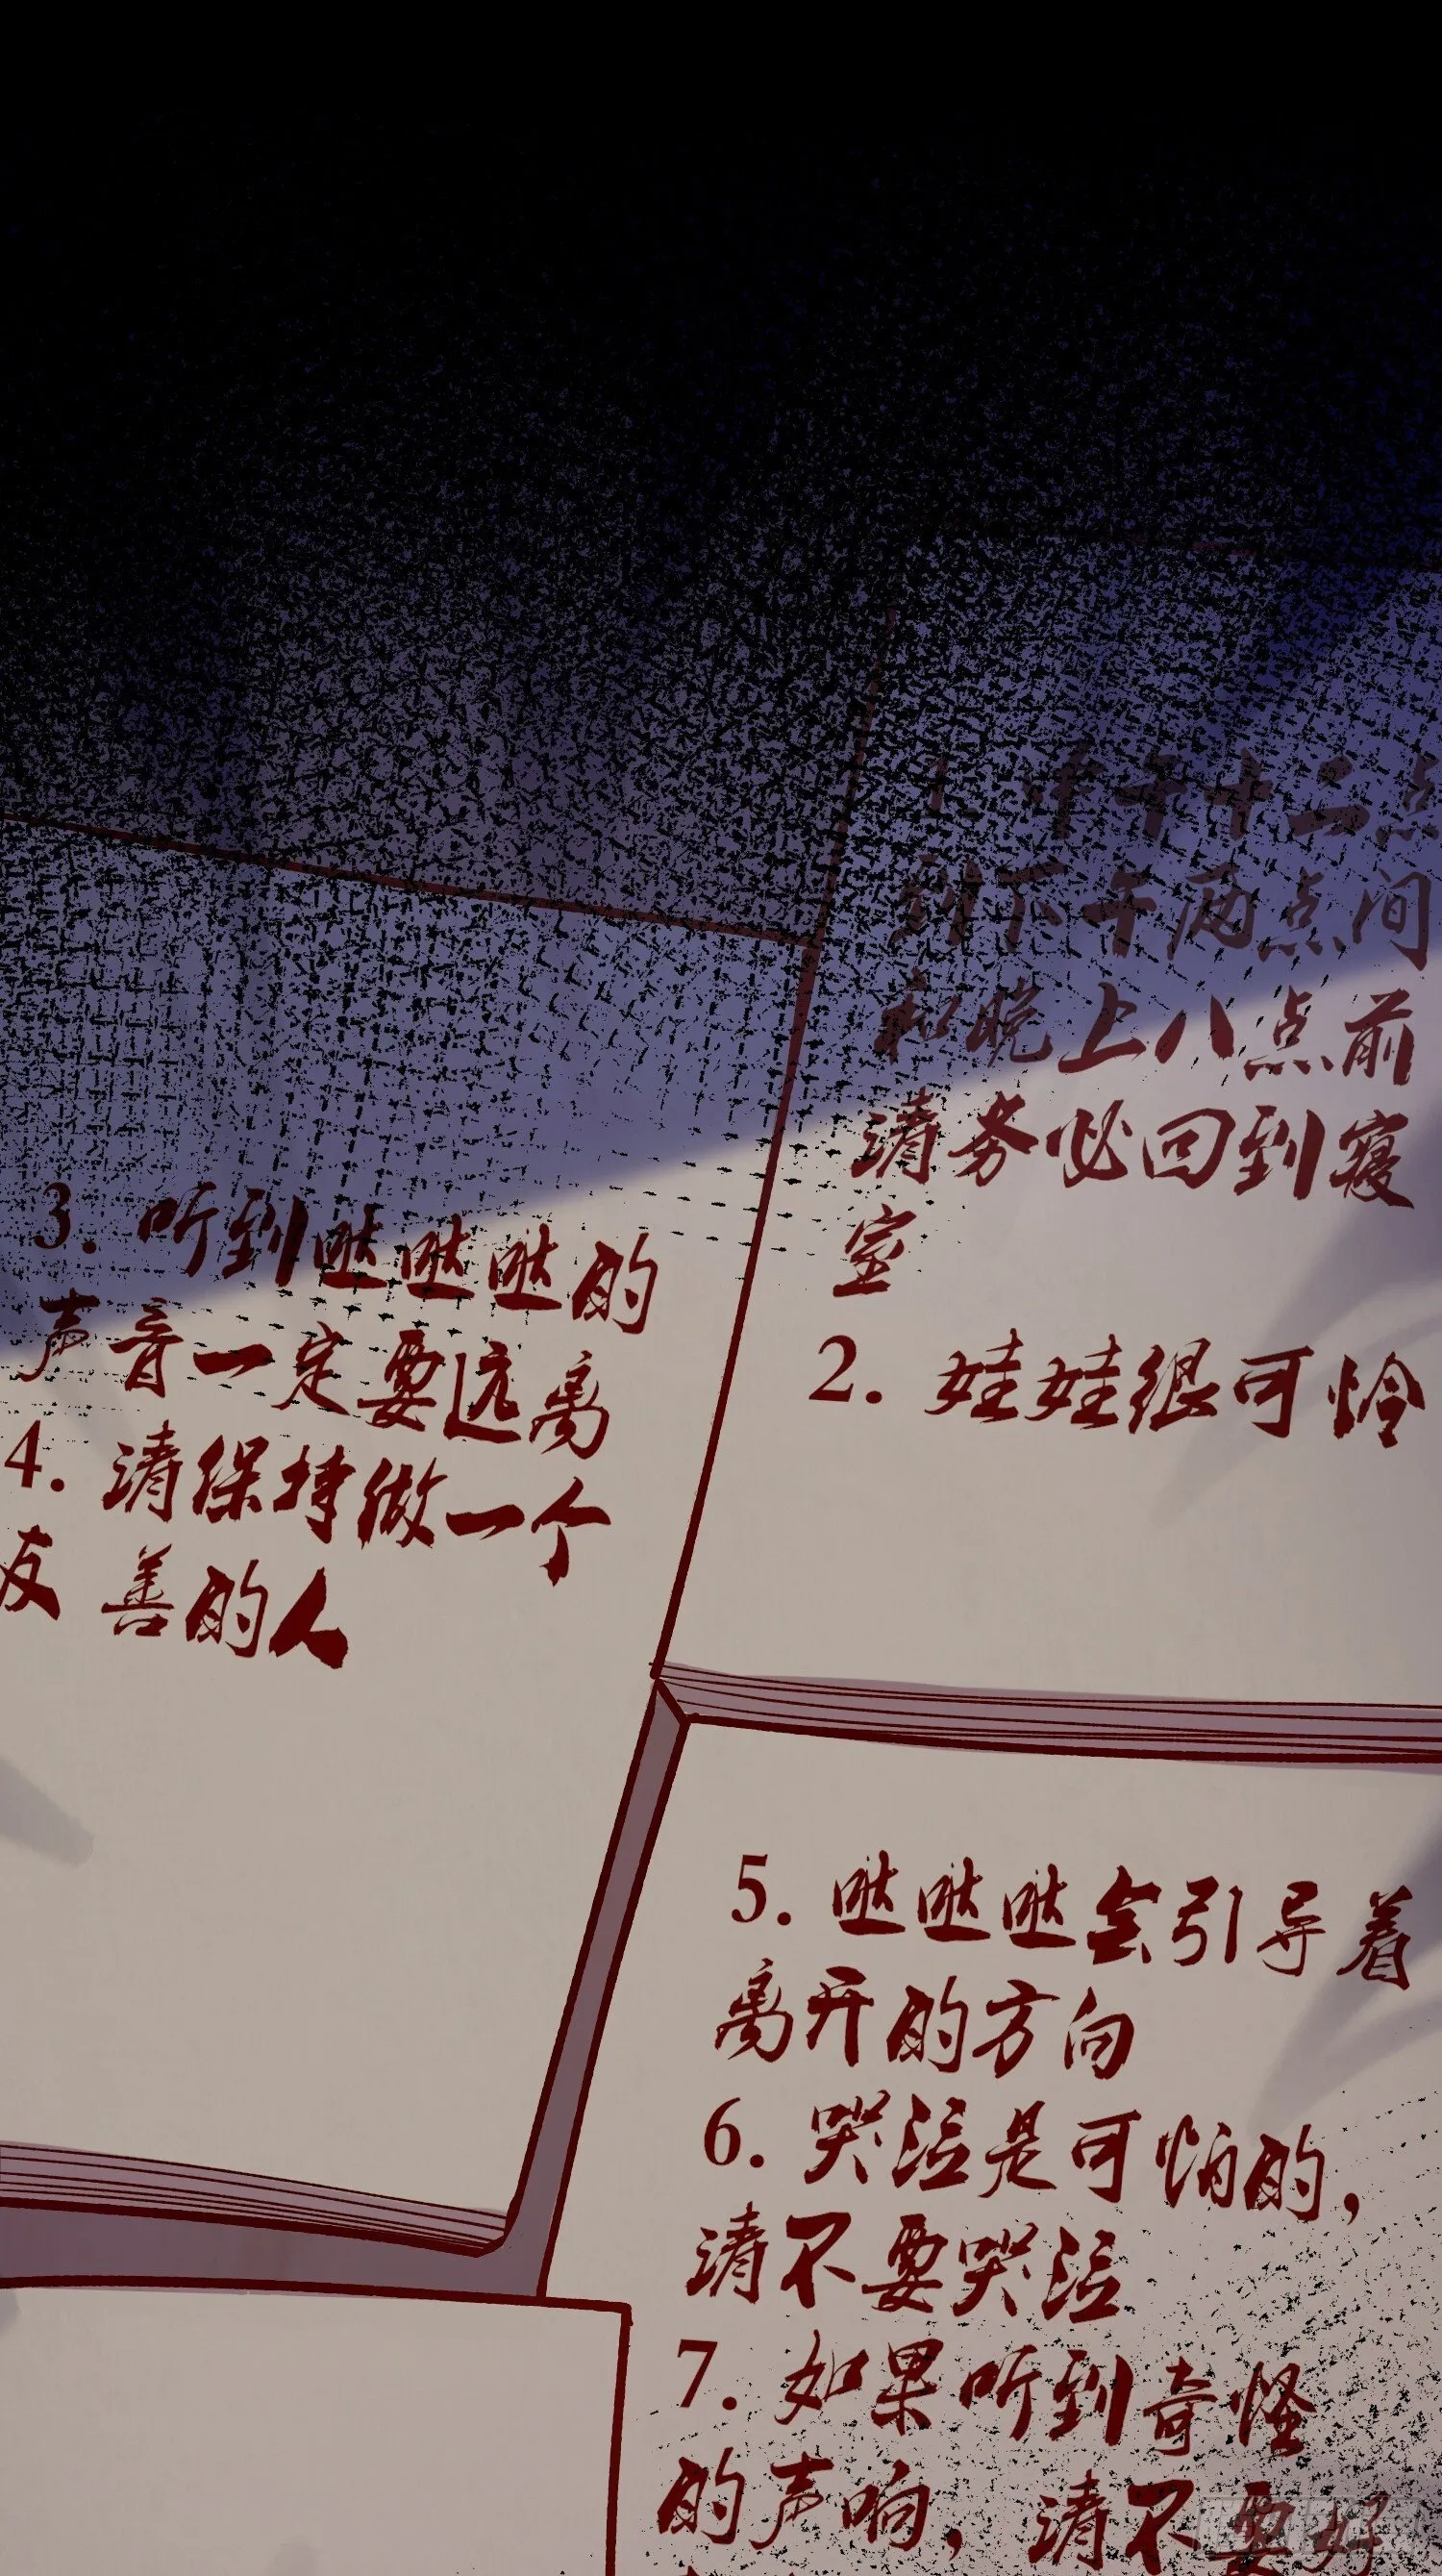 1. 中午十二点
到下午两点间
和晚上八点前
请务必回到寝
室
2. 娃娃很可怜
3. 听到哒哒哒的
声音一定要远离
4. 请保持做一个
友善的人
5. 哒哒哒会引导着
离开的方向
6. 哭泣是可怕的,
请不要哭泣
7. 如果听到奇怪
的声响,请不要好